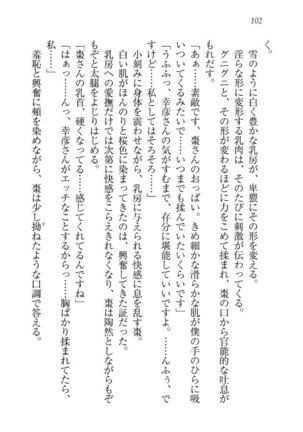 102
く。
雪のように白く豊かな乳房が、卑猥にその形を変える。
淫らな形に変形する乳肉は、そのたびに刺激が伝わってくる。
グニグニと、その形が変わるほどに力をこめて揉まれ、棗の口から官能的な吐息が
もれだす。
「あぁ……素敵です、棗さんのおっぱい。きめ細かな滑らかな肌が僕の手のひらに吸
いついてくるみたいで……いつまでも揉んでいたいくらいです」
「うふふっ、幸彦さんの気がすむまで、存分に堪能していいですよ。……んふぅ、で
すけど……私としてはそろそろ……」
小刻みに身体を震わせながら、乳房に与えられる快感に息を乱す棗。
白い肌がほんのりと桜色に染まってきたのは、興奮してきた証だった。
乳房への愛撫だけでは次第に快感をこらえきれなくなり、棗は陶然としながらもぞ
もぞと太腿をよじりはじめる。
「棗さんの乳首、硬くなってる……感じてくれてるんですね」
「はぁっ……んっ、幸彦さんがエッチなことするから……胸ばかり揉まれてたら、
私……」
羞恥と興奮に頬を染めながら、棗は少し拗ねたような口調で答える。